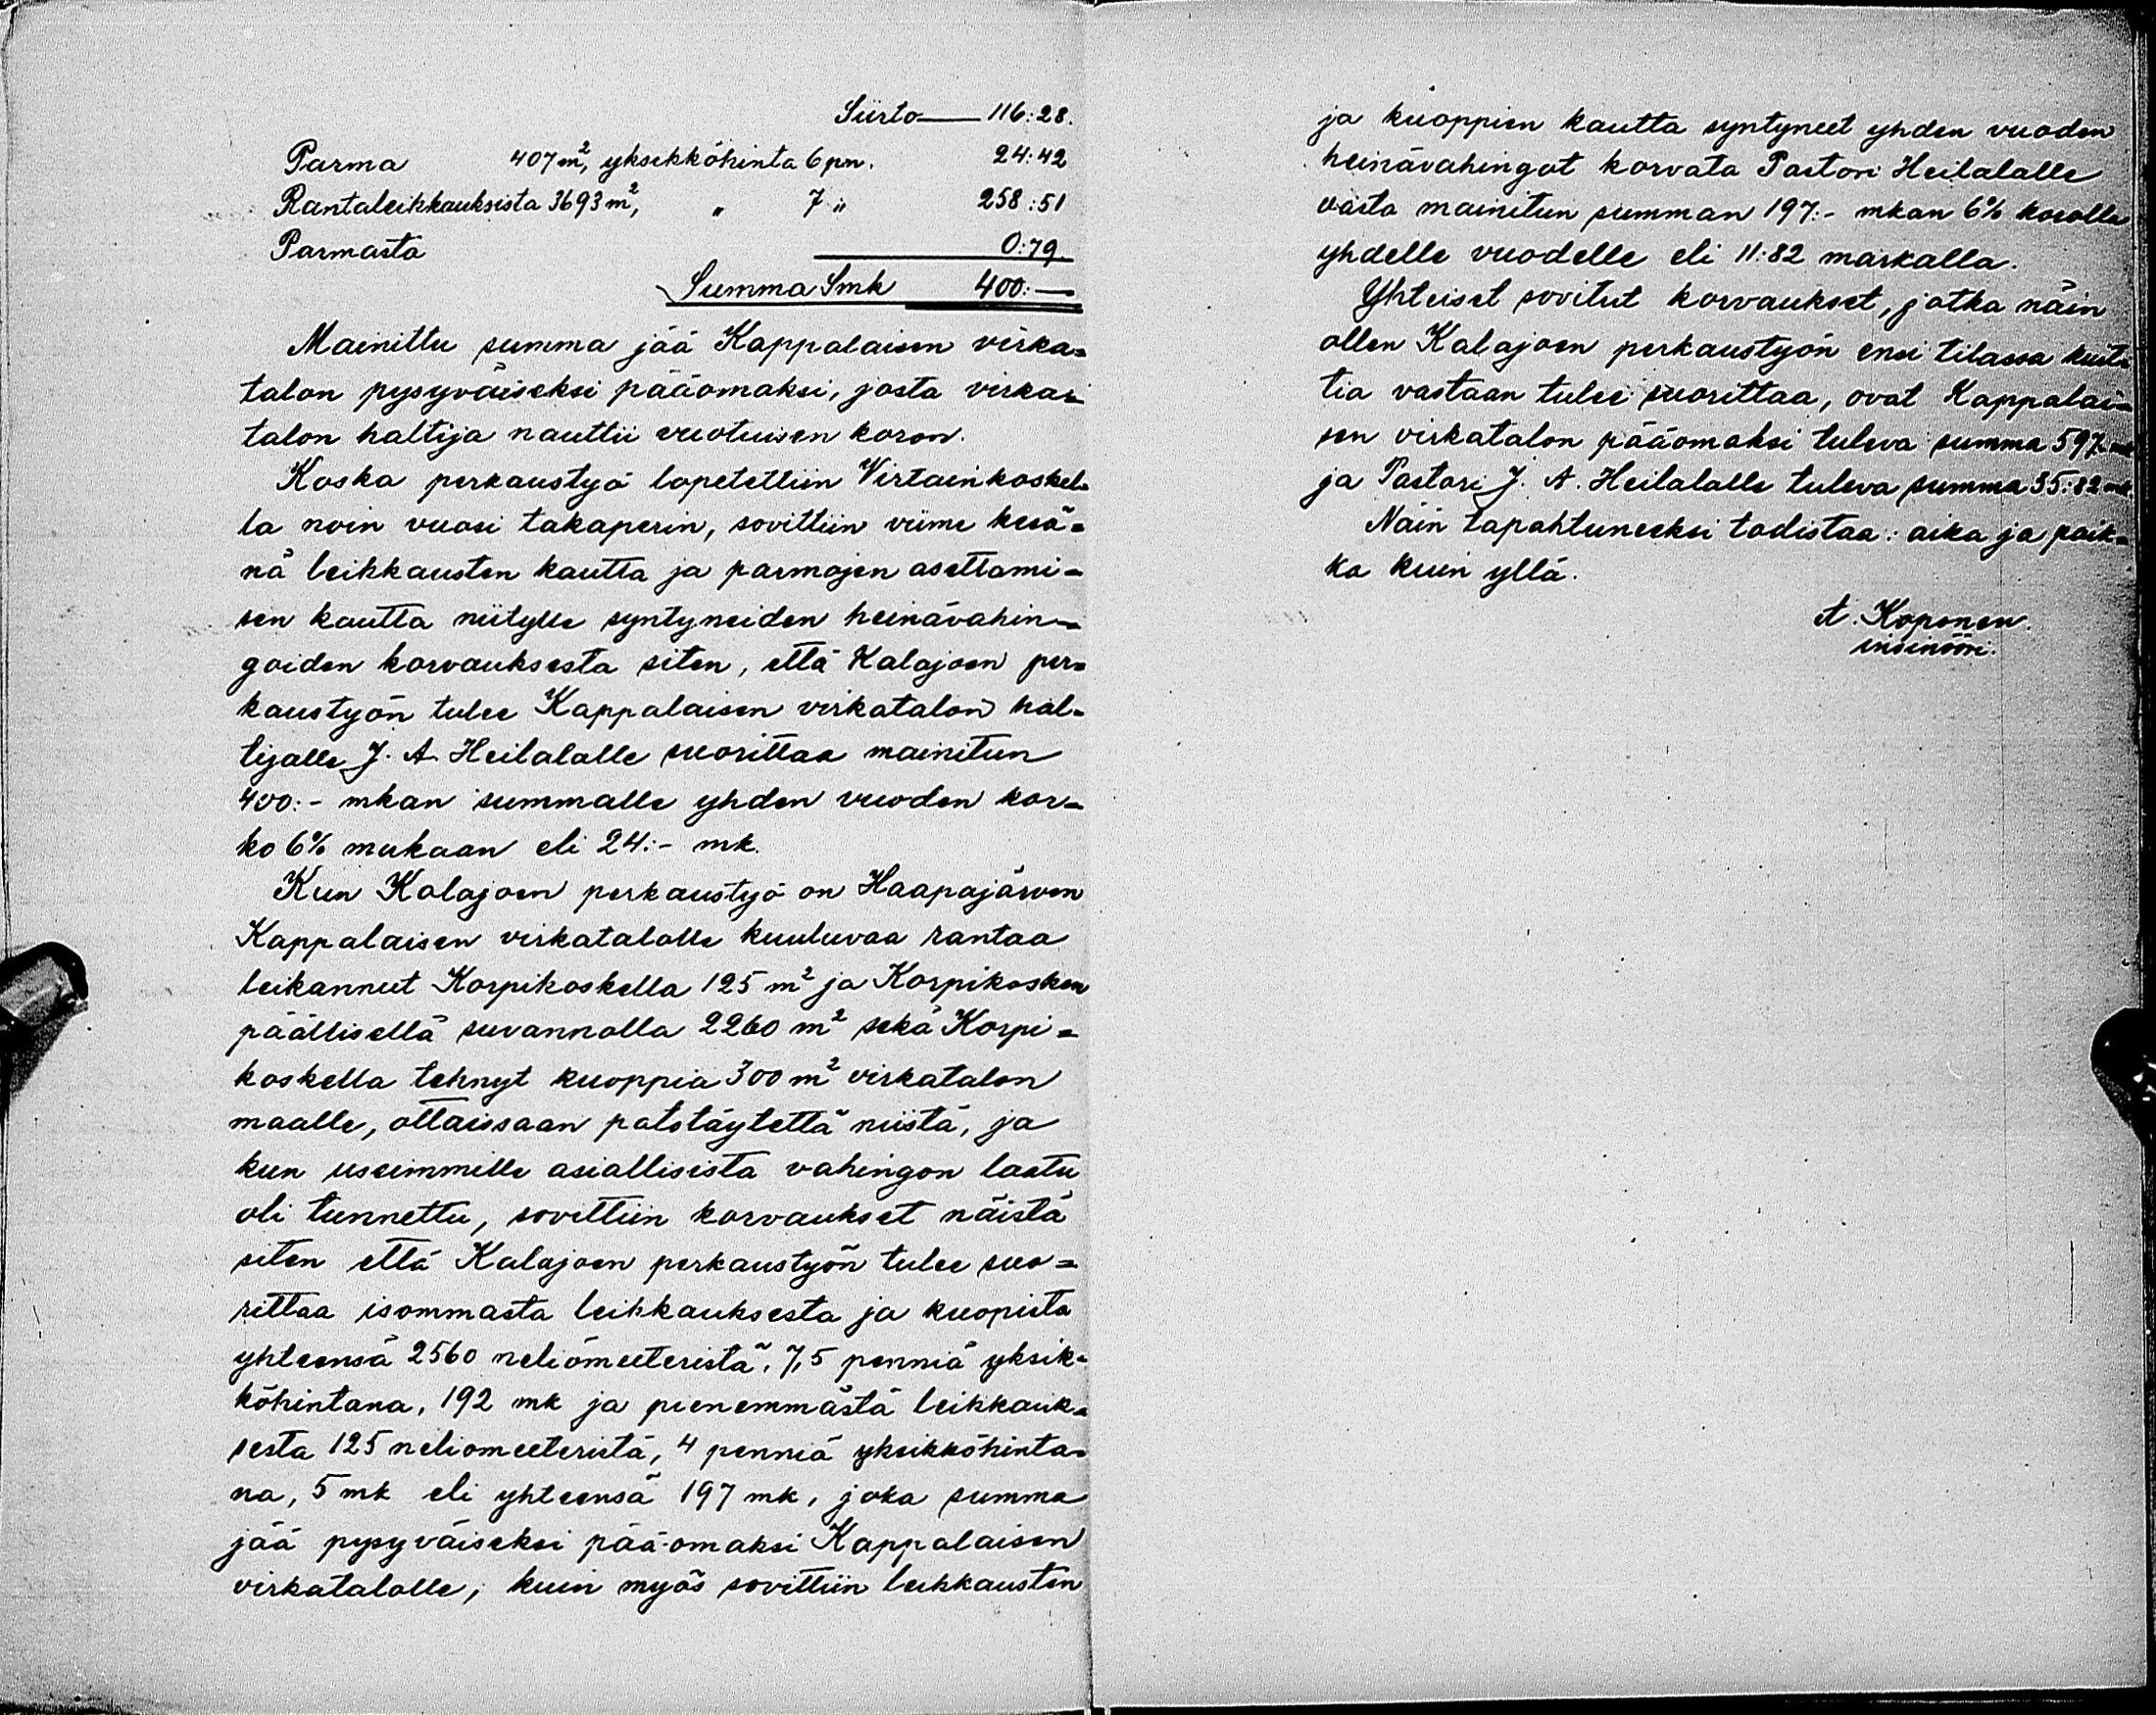 Siirto — 116:28.
Parma 407 m², yksikköhinta 6 pn. 24:42
Rantaleikkauksista 3693 m², " 7 " 258:51
Parmasta 0:79
Summa Smk 400:—
Mainittu summa jää Kappalaisen virka=
talon pysyväiseksi pääomaksi, josta virka=
talon haltija nauttii vuotuisen koron.
Koska perkaustyö lopetettiin Virtainkoskel=
la noin vuosi takaperin, sovittiin viime kesä=
nä leikkausten kautta ja parmojen asettami=
sen kautta niitylle syntyneiden heinävahin=
goiden korvauksesta siten, että Kalajoen per=
kaustyön tulee Kappalaisen virkatalon hal=
tijalle J. A. Heilalalle suorittaa mainitun
400:- mkan summalle yhden vuoden kor=
ko 6% mukaan eli 24:- mk.
Kun Kalajoen perkaustyö on Haapajärven
Kappalaisen virkatalolle kuuluvaa rantaa
leikannut Korpikoskella 125 m² ja Korpikosken
päällisellä suvannolla 2260 m² sekä Korpi=
koskella tehnyt kuoppia 300 m² virkatalon
maalle, ottaissaan patotäytettä niistä, ja
kun useimmille asiallisista vahingon laatu
oli tunnettu, sovittiin korvaukset näistä
siten että Kalajoen perkaustyön tulee suo=
rittaa isommasta leikkauksesta ja kuopista
yhteensä 2560 neliömeeteristä, 7,5 penniä yksik=
köhintana, 192 mk ja pienemmästä leikkauk=
sesta 125 neliomeeteristä, 4 penniä yksikköhinta=
na, 5 mk eli yhteensä 197 mk, joka summa
jää pysyväiseksi pää-omaksi Kappalaisen
virkatalolle, kuin myös sovittiin leikkausten
ja kuoppien kautta syntyneet yhden vuoden
heinävahingot korvata Pastori Heilalalle
vasta mainitun summan 197:- mkan 6% korolla
yhdelle vuodelle eli 11:82 markalla.
Yhteiset sovitut korvaukset, jotka näin
ollen Kalajoen perkaustyön ensi tilassa kuit=
tia vastaan tulee suorittaa, ovat Kappalai=
sen virkatalon pääomaksi tuleva summa 597:- mk
ja Pastori J. A. Heilalalle tuleva summa 35:82 mk
Näin tapahtuneeksi todistaa: aika ja paik=
ka kuin yllä.
A. Koponen.
insinööri.